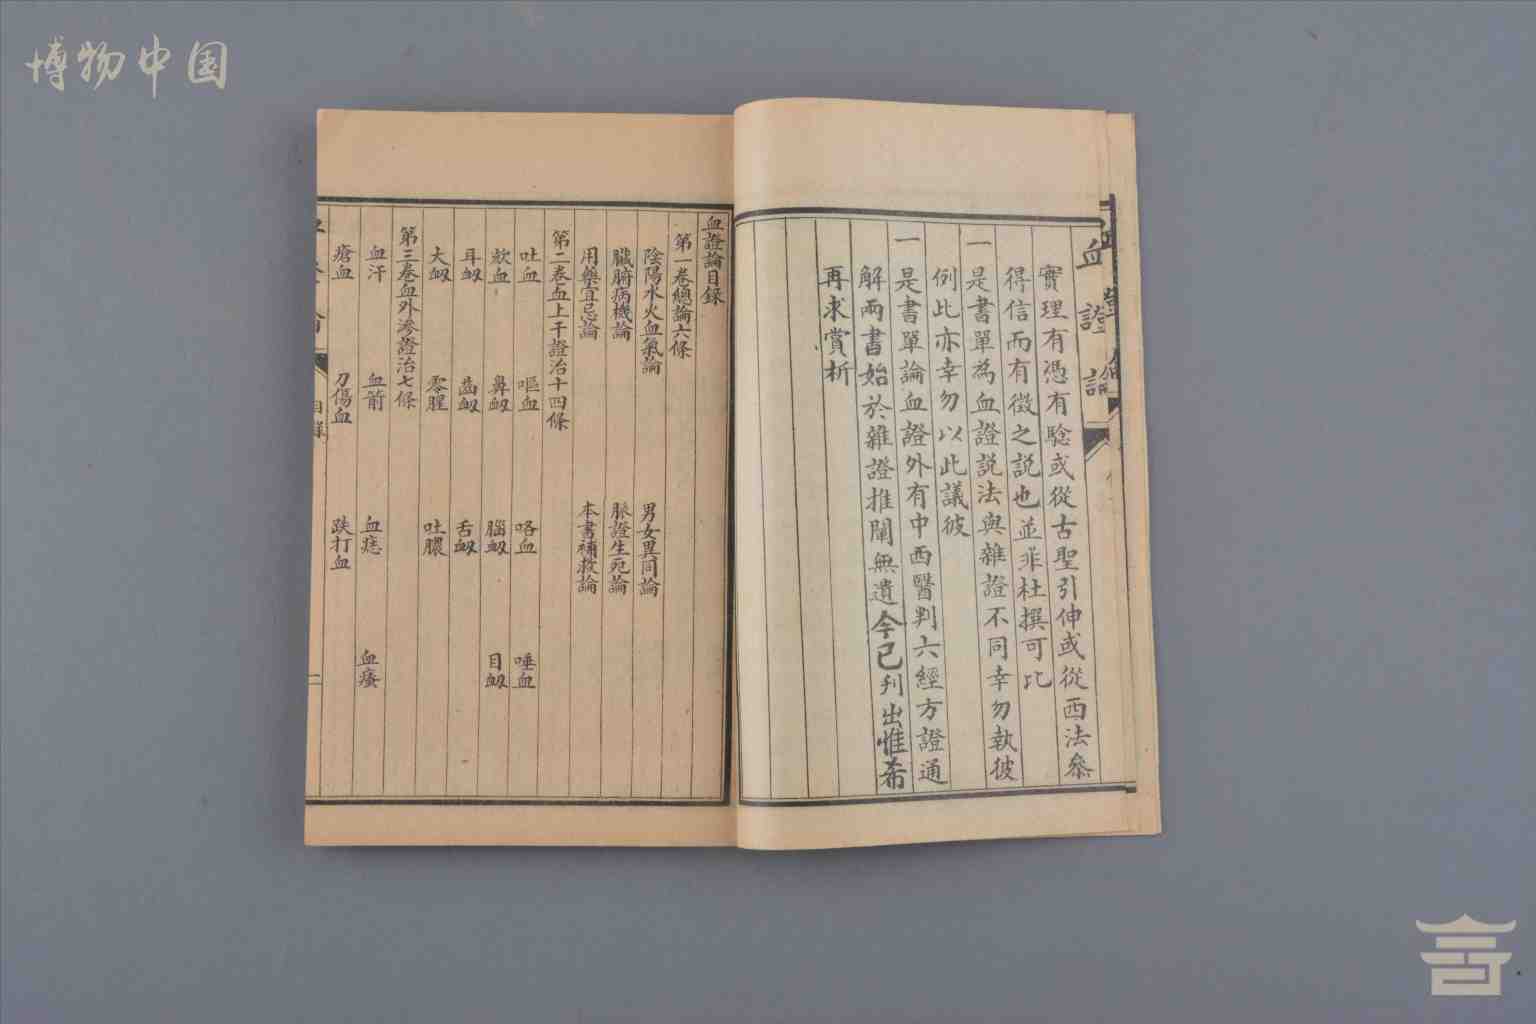 博物中国
血證論
實理有憑有騐或從古聖引伸或從西法叅
得信而有徵之説也並非杜撰可比
一是書單為血證説法與雜證不同幸勿執彼
例此亦幸勿以此議彼
一是書單論血證外有中西醫判六經方證通
解兩書始於雜證推闡無遺今已刋出惟希
再求賞析
血證論目録
第一卷總論六條
陰陽水火血氣論 男女異同論
臓腑病機論 脈證生死論
用藥宜忌論 本書補救論
第二卷血上干證治十四條
吐血 嘔血 咯血 唾血
欬血 鼻衂 腦衂 目衂
耳衂 齒衂 舌衂
大衂 零腥 吐膿
第三卷血外滲證治七條
血汗 血箭 血痣 血瘙
瘡血 刀傷血 跌打血
目録
二